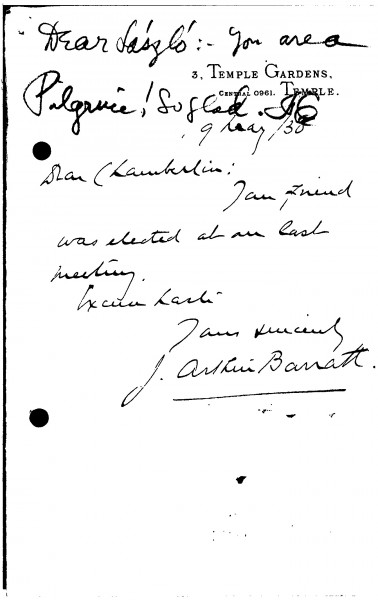 Dear László:- You are a
3, TEMPLE GARDENS,
Pilgrim! So glad.
CENTRAL 0961. TEMPLE.
9 May/30
Dear Chamberlin:
Your friend
was elected at our last
meeting.
Excuse haste
Yours sincerely
J. Arthur Barratt.